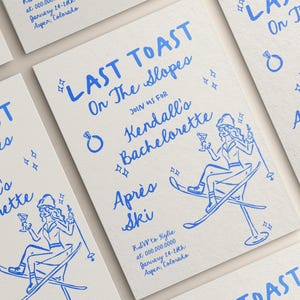 at: 000.000.0000
January 14-18th,
Aspen, Colorado
LAST TOAST
On The Slopes
JOIN US FOR
Kendall's
Bachelorette
Après
Ski
RSVP to Kylie
at: 000.000.0000
January 14-18th,
Aspen, Colorado
LAST
On